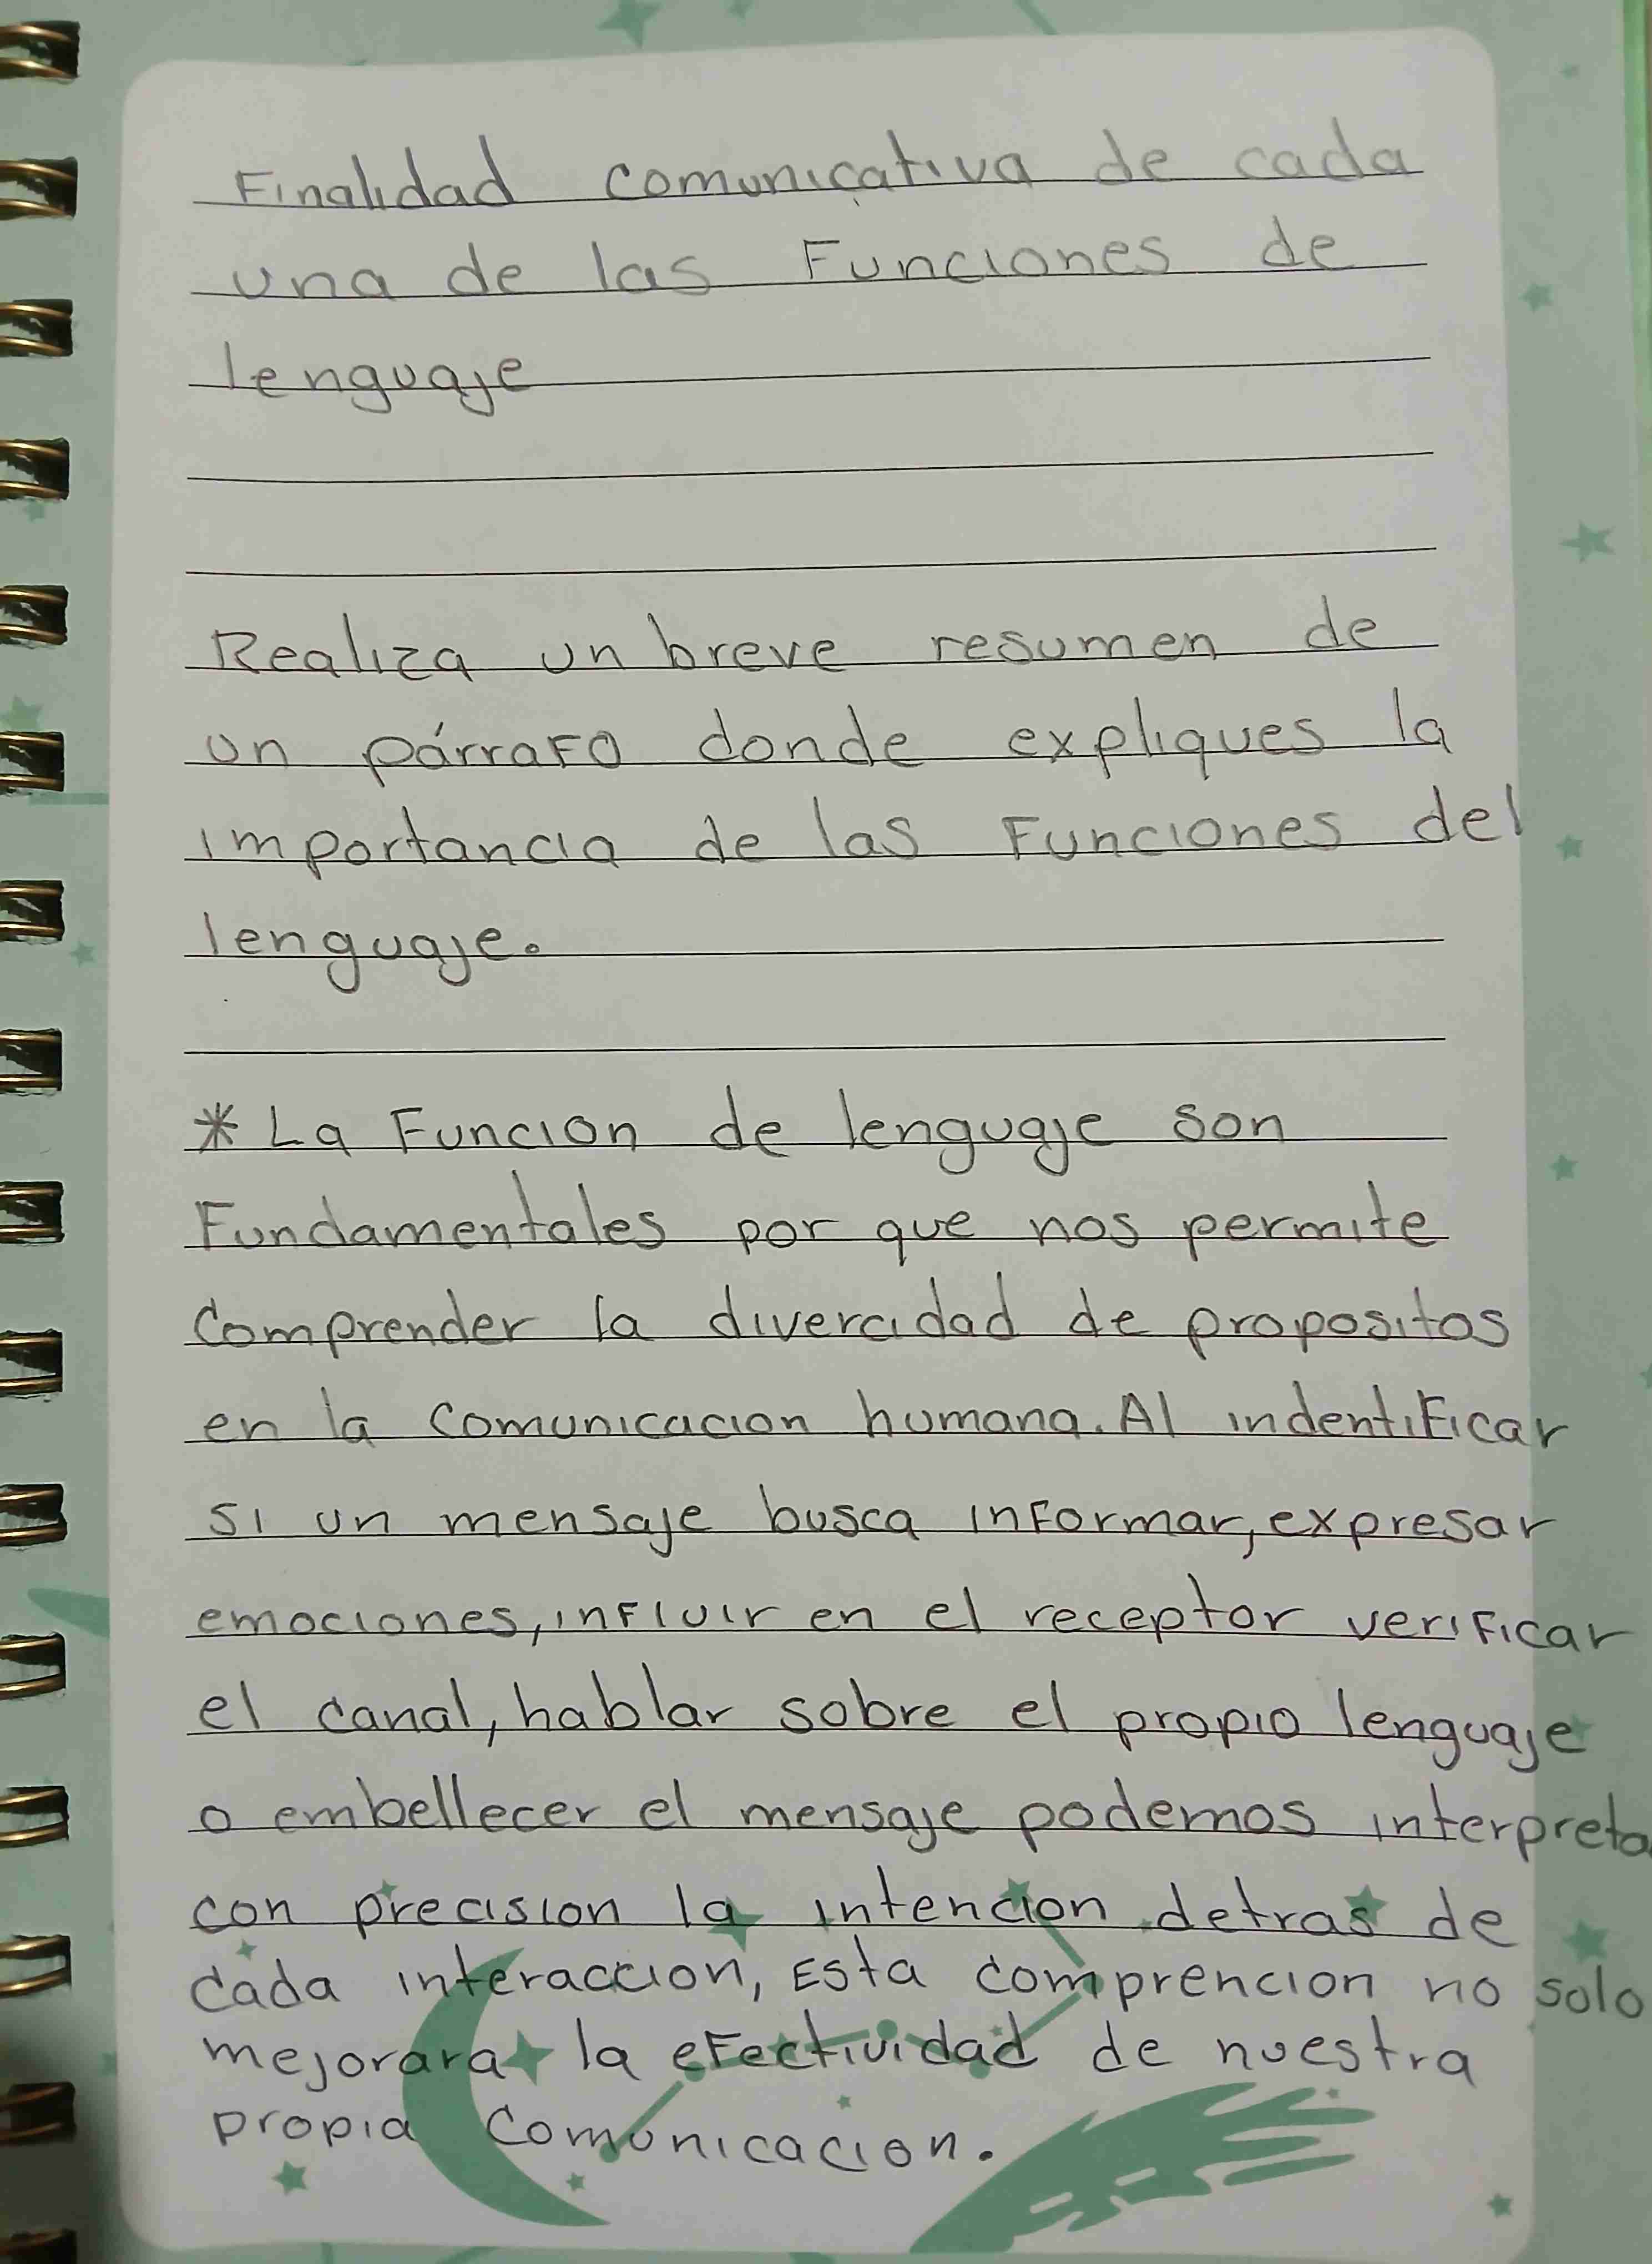 Finalidad comunicativa de cada
una de las Funciones de
lenguaje
Realiza un breve resumen de
un párraFo donde expliques la
importancia de las Funciones del
lenguaje.
* La Funcion de lenguaje son
Fundamentales por que nos permite
comprender la divercidad de propositos
en la comunicacion humana. Al indentificar
si un mensaje busca inFormar, expresar
emociones, inFluir en el receptor veriFicar
el canal, hablar sobre el propio lenguaje
o embellecer el mensaje podemos interpreta
con precision la intencion detras de
cada interaccion, Esta comprencion no solo
mejorara la eFectividad de nuestra
propia comunicacion.